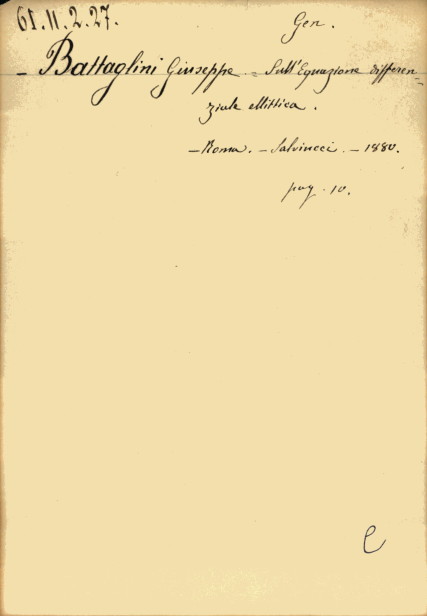 61.11.2.27.
Gen.
- Battaglini Giuseppe - Sull'Equazione differen-
ziale ellittica.
- Roma. - Salviucci. - 1880.
pag. 10.
e